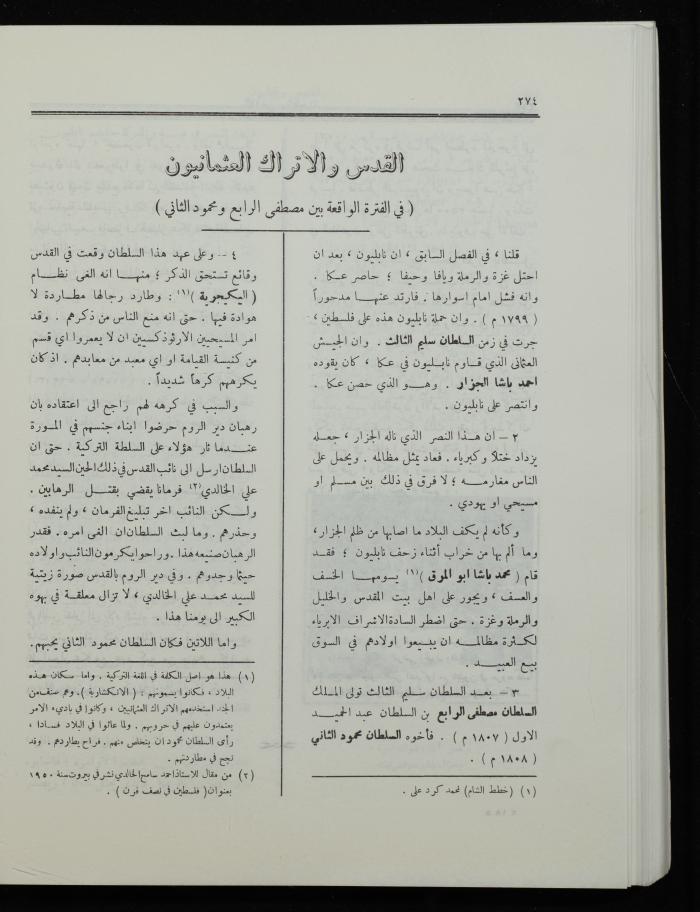 ٢٧٤
القدس والاتراك العثمانيون
( في الفترة الواقعة بين مصطفى الرابع ومحمود الثاني )
قلنا ، في الفصل السابق ، ان نابليون ، بعد ان
احتل غزة والرملة ويافا وحيفا ؛ حاصر عكا .
وانه فشل امام اسوارها . فارتد عنها مدحوراً
( ١٧٩٩ م ) . وان حملة نابليون هذه على فلسطين ،
جرت في زمن السلطان سليم الثالث . وان الجيش
العثماني الذي قاوم نابليون في عكا ، كان يقوده
احمد باشا الجزار . وهو الذي حصن عكا .
وانتصر على نابليون .
٢ – ان هذا النصر الذي ناله الجزار ، جعله
يزداد ختلاً وكبرياء . فعاد يمثل مظالمه . ويحمل على
الناس مغارمه ؛ لا فرق في ذلك بين مسلم او
مسيحي او يهودي .
وكأنه لم يكف البلاد ما اصابها من ظلم الجزار،
وما ألم بها من خراب أثناء زحف نابليون ؛ فقد
قام ( محمد باشا ابو المرق )(١) يسومها الخسف
والعسف ، ويجور على اهل بيت المقدس والخليل
والرملة وغزة . حتى اضطر السادة الاشراف الابرياء
لكثرة مظالمه ان يبيعوا اولادهم في السوق
بيع العبيد .
٣ – بعد السلطان سليم الثالث تولى الملك
السلطان مصطفى الرابع بن السلطان عبد الحميد
الاول ( ١٨٠٧ م ) . فأخوه السلطان محمود الثاني
( ١٨٠٨ م ) .
(١) (خطط الشام) لمحمد كرد علي .
٤ – وعلى عهد هذا السلطان وقعت في القدس
وقائع تستحق الذكر ؛ منها انه الغى نظام
( اليكيجرية )(١) : وطارد رجالها مطاردة لا
هوادة فيها . حتى انه منع الناس من ذكرهم . وقد
امر المسيحيين الارثوذكسيين ان لا يعمروا اي قسم
من كنيسة القيامة او اي معبد من معابدهم . اذ كان
يكرههم كرهاً شديداً .
والسبب في كرهه لهم راجع الى اعتقاده بان
رهبان دير الروم حرضوا ابناء جنسهم في المورة
عندما ثار هؤلاء على السلطة التركية . حتى ان
السلطان ارسل الى نائب القدس في ذلك الحين السيد محمد
علي الخالدي (٢) فرمانا يقضي بقتل الرهابين .
ولكن النائب اخر تبليغ الفرمان ، ولم ينفده ،
وحذرهم . وما لبث السلطان ان الغى امره . فقدر
الرهبان صنيعه هذا . وراحوا يكرمون النائب واولاده
حيثما وجدوهم . وفي دير الروم بالقدس صورة زيتية
للسيد محمد علي الخالدي ، لا تزال معلقة في بهوه
الكبير الى يومنا هذا .
واما اللاتين فكان السلطان محمود الثاني يحبهم.
(١) هذا هو اصل الكلمة في اللغة التركية . واما سكان هذه
البلاد ، فكانوا يسمونهم : ( الانكشارية ) . وهم صنف من
الجند استخدمهم الاتراك العثمانيين ، وكانوا في باديء الامر
يعتمدون عليهم في حروبهم . ولما عاثوا في البلاد فسادا ،
رأى السلطان محمود ان يتخلص منهم . فراح يطاردهم . وقد
نجح في مطاردتهم .
(٢) من مقال للاستاذ احمد سامح الخالدي نشر في بيروت سنة ١٩٥٠
بعنوان ( فلسطين في نصف قرن ) .